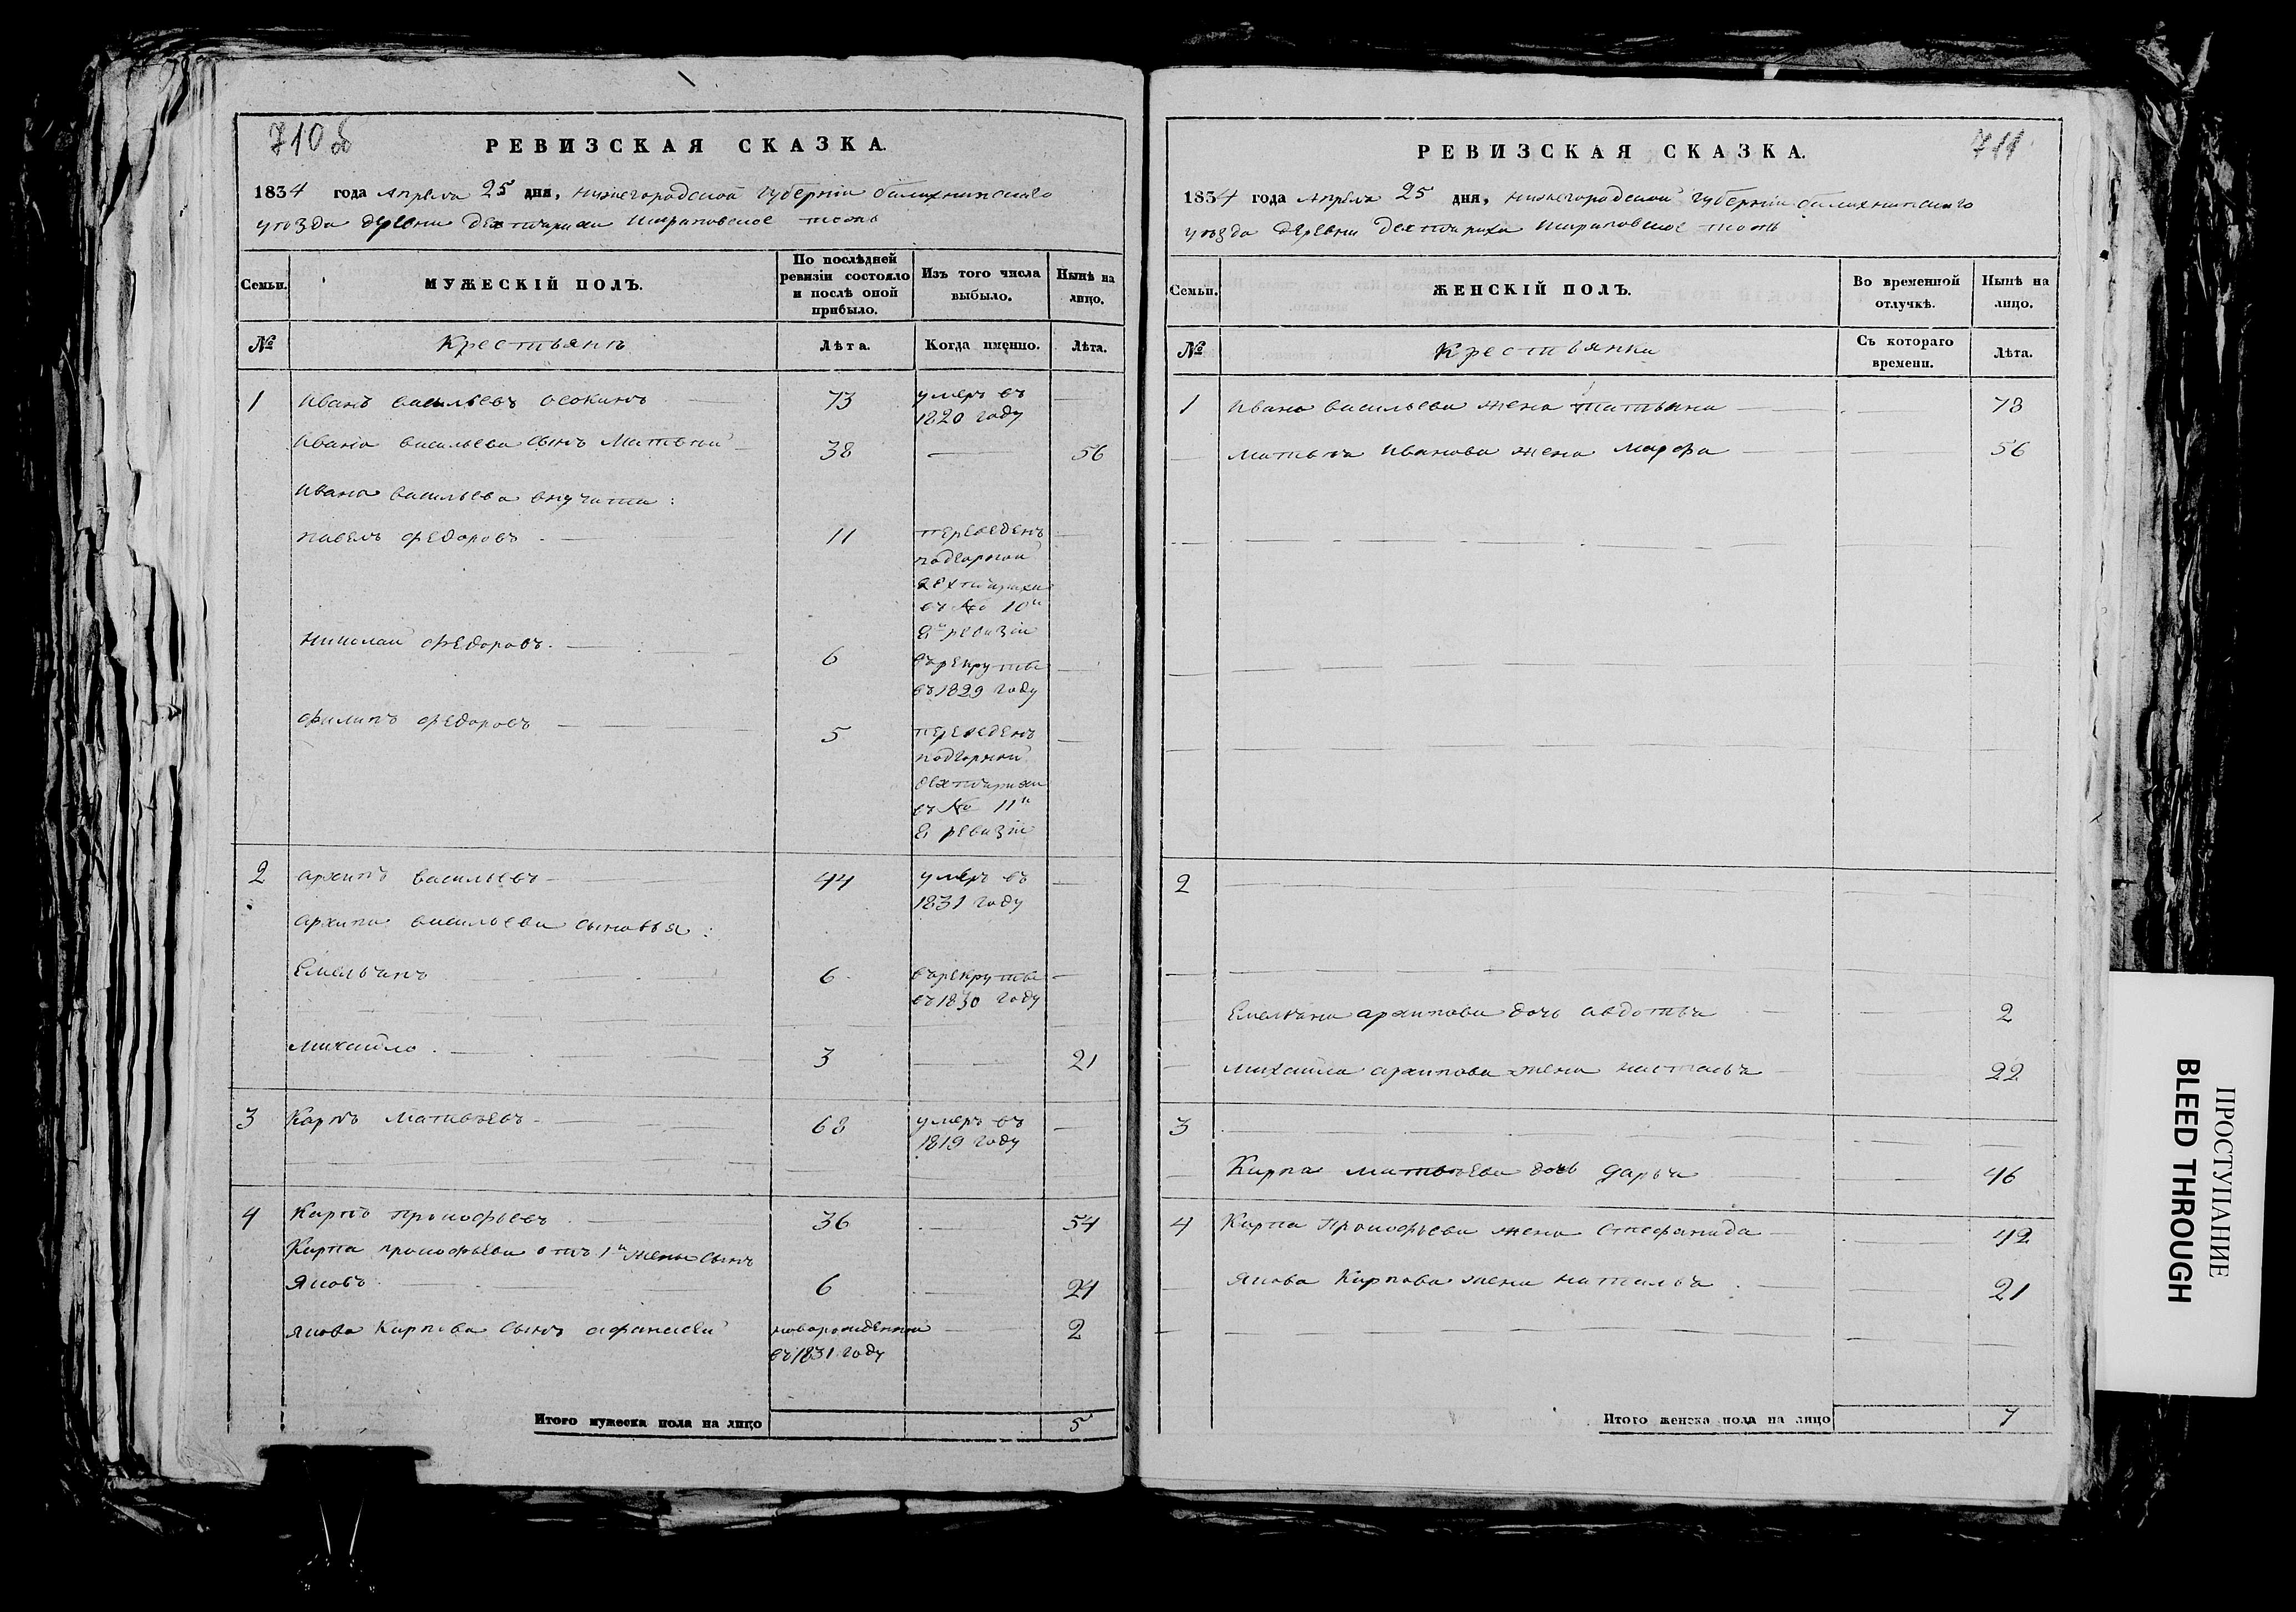 710 об
РЕВИЗСКАЯ СКАЗКА.
1834 года Апреля 25 дня, нижегородской губернии балахнинского
уезда деревни дехтярихи тожъ
Семьи.
МУЖЕСКІЙ ПОЛЪ.
По послѣдней ревизіи состояло и послѣ оной прибыло.
Изъ того числа выбыло.
Нынѣ на лицо.
№
Крестьянъ
Лѣта.
Когда именно.
Лѣта.
1 Иванъ васильевъ осокинъ 73 умеръ въ
1820 году
Ивана васильева сынъ Матвей 38 56
Ивана васильева внучата:
павелъ федоровъ 11 переведенъ
подгорной
дехтярихи
въ № 10й
8й ревизіи
николай федоровъ. 6 въ рекруты
въ 1829 году
филипъ федоровъ 5 переведенъ
подгорной
дехтярихи
въ № 11й
8й ревизіи
2 архипъ васильевъ 44 умеръ въ
1831 году
архипа васильева сыновья:
Емельянъ 6 в рекруты
въ 1830 году
михайло. 3 21
3 Карпъ Матвѣевъ 68 умеръ въ
1819 году
4 Карпъ прокофьевъ 36 54
Карпа прокофьева отъ 1й жены сынъ
яковъ 6 24
якова Карпова сынъ афанасей новорожденной 2
въ 1831 году
Итого мужеска пола на лицо 5
711
РЕВИЗСКАЯ СКАЗКА.
1834 года Апреля 25 дня, нижегородской губернии балахнинского
уезда деревни дехтяриха тожъ
Семьи.
ЖЕНСКІЙ ПОЛЪ.
Во временной отлучкѣ.
Нынѣ на лицо.
№
Крестьянки
Съ котораго времени.
Лѣта.
1 Ивана васильева жена татьяна 73
матвея Иванова жена марфа 56
2
Емельяна архипова дочь авдотья 2
михаила архипова жена наталья 22
3
Карпа матвѣева дочь дарья 46
4 Карпа Прокофьева жена стефанида 42
якова Карпова жена наталья 21
Итого женска пола на лицо 7
ПРОСТУПАНИЕ
BLEED THROUGH